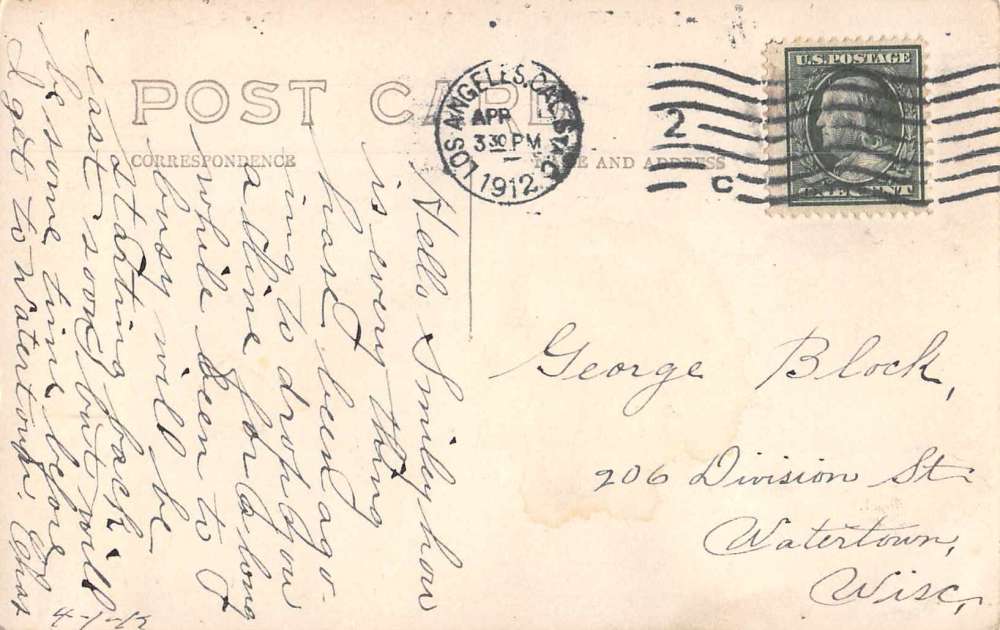 POST CARD
CORRESPONDENCE
NAME AND ADDRESS
LOS ANGELES, CAL. STA. C
APR
3 30 PM
1912
2
C
U.S. POSTAGE
ONE CENT
Hello Smiley how
is every thing
hase been ago-
ing to drop you
a line for a long
while been to
busy will be
starting back
east soon but will
be some time before
I get to Watertown. Chas
4-1-12
George Block,
206 Division St
Watertown,
Wisc,